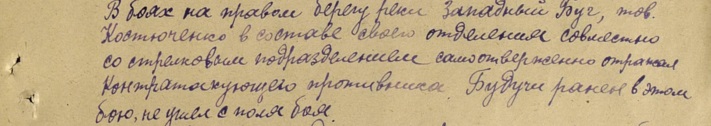 В боях на правом берегу реки Западный Буг, тов.
Костюченко в составе своего отделения совместно
со стрелковым подразделением самоотверженно отражал
контратакующего противника. Будучи ранен в этом
бою, не ушел с поля боя.